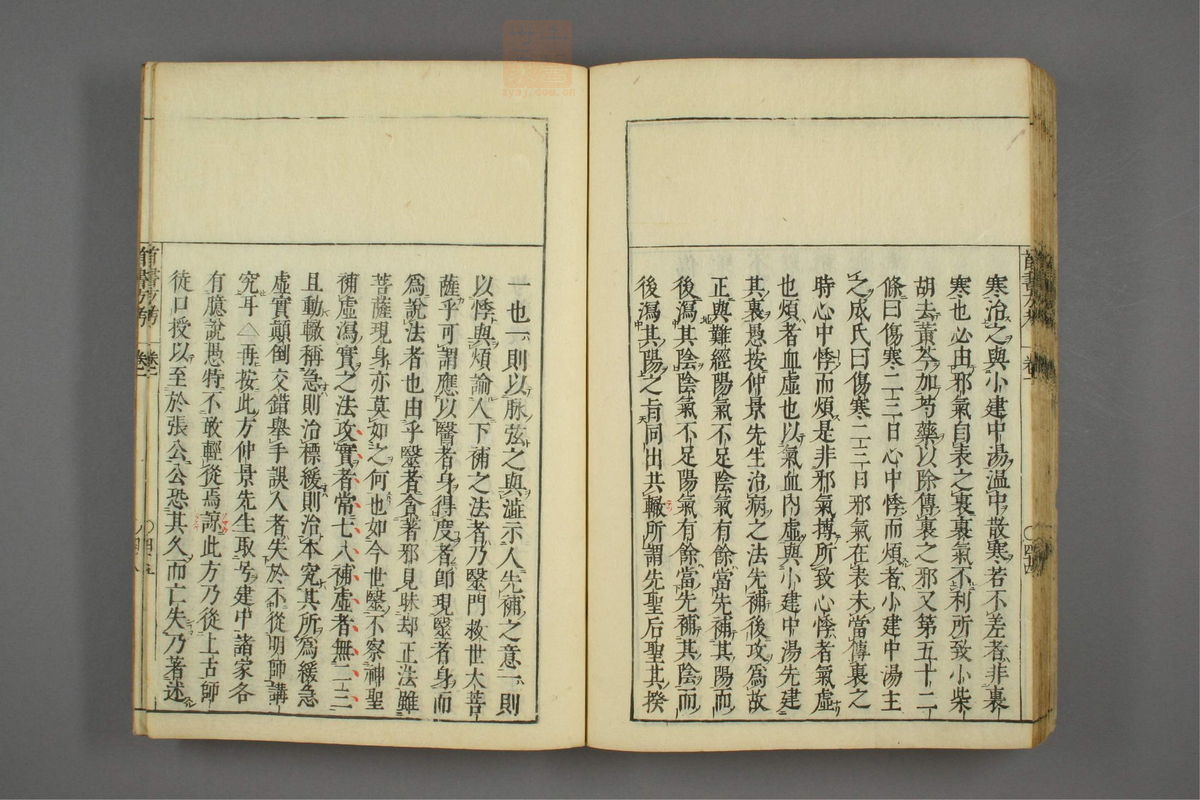 寒治之與小建中湯溫中散寒若不差者非裏
寒也必由邪氣自表之裏裏氣不利所致小柴
胡去黃芩加芍藥以除傳裏之邪又第五十二
條曰傷寒二三日心中悸而煩者小建中湯主
之成氏曰傷寒二三日邪氣在表未當傳裏之
時心中悸而煩是非邪氣搏所致心悸者氣虛
也煩者血虛也以氣血內虛與小建中湯先建
其裏愚按仲景先生治病之法先補後攻爲故
正與難經陽氣不足陰氣有餘當先補其陽而
後瀉其陰陰氣不足陽氣有餘當先補其陰而
後瀉其陽之旨同出共轍所謂先聖后聖其揆
一也一則以脉弦之與澁示人先補之意一則
以悸與煩諭人下補之法者乃毉門救世大菩
薩乎可謂應以醫者身得度者卽現毉者身而
爲說法者也由乎毉者含著邪見昧却正法雖
菩薩現身亦莫如之何也如今世毉不察神聖
補虛瀉實之法攻實者常七八補虛者無二三
且動輙稱急則治標緩則治本究其所爲緩急
虛實顚倒交錯舉手誤人者失於不從明師講
究耳△再按此方仲景先生取号建中諸家各
有臆說愚特不敢輕從焉諒此方乃從上古師
徒口授以至於張公公恐其久而亡失乃著述